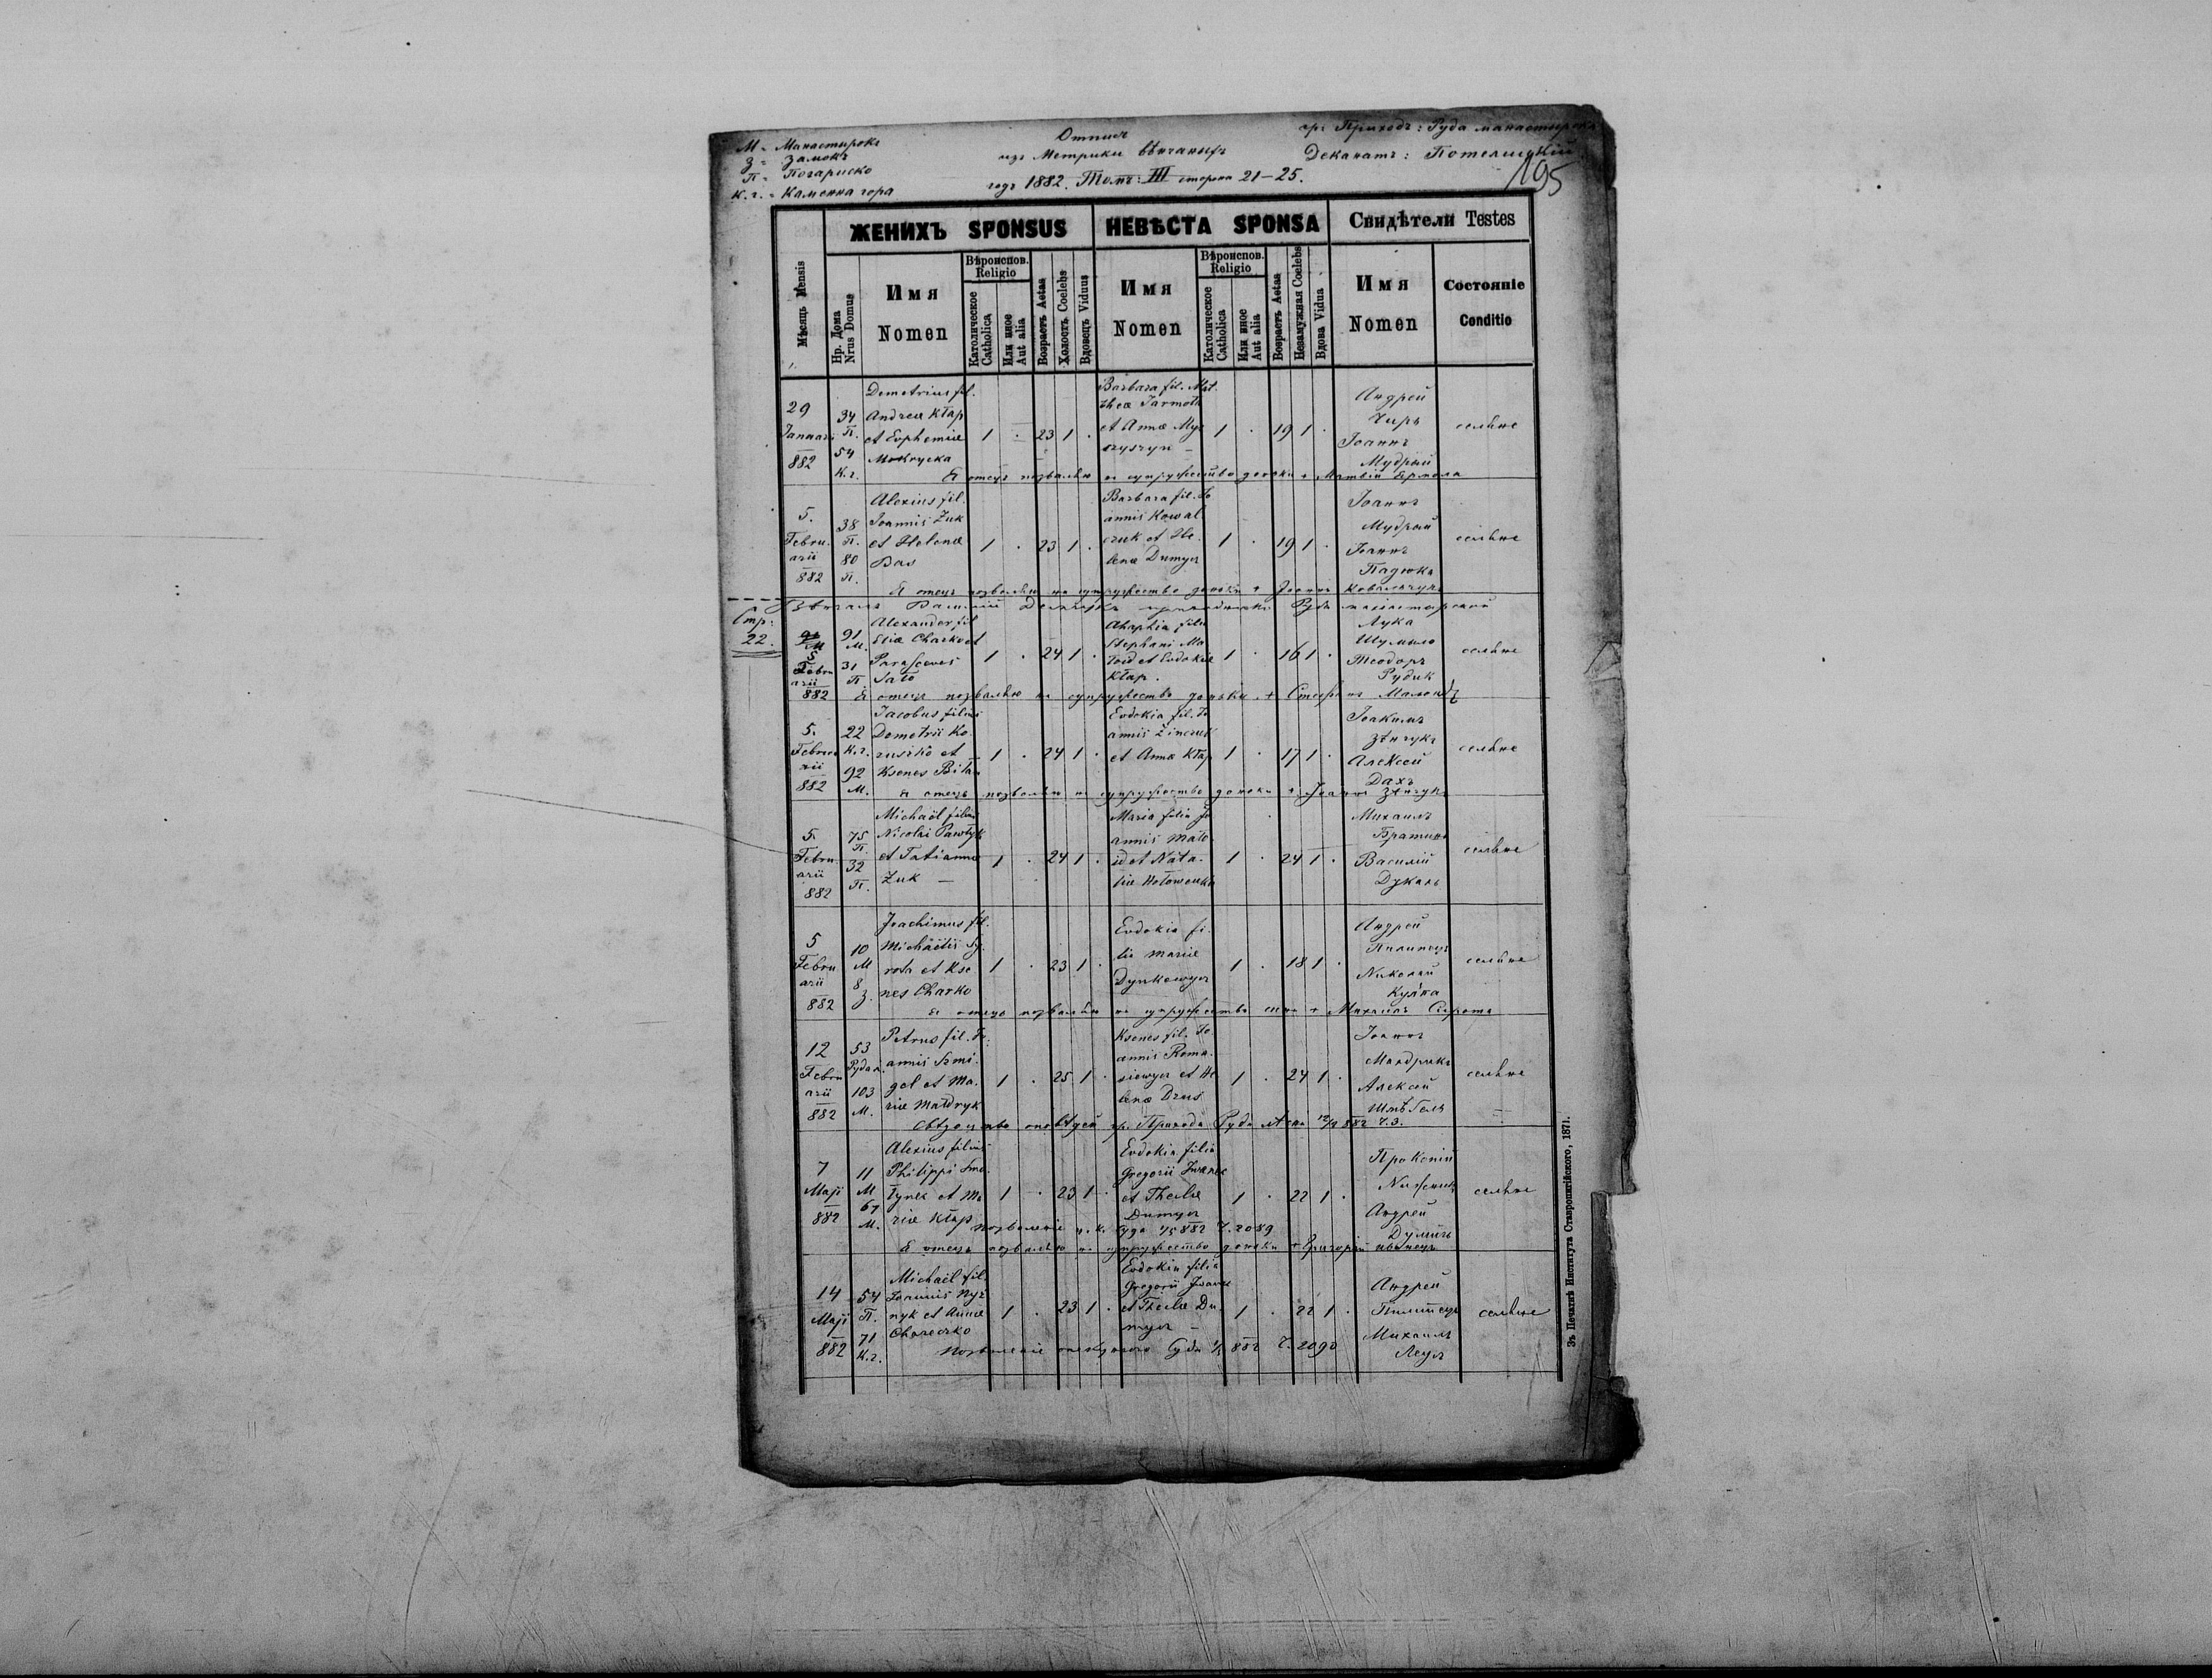 М - Манастирокъ
З - Замокъ
П - Погариско
К. г. - Каменна гора
Отписъ
изъ Метрики вѣнчаныхъ
годъ 1882. Томъ: III сторона 21-25.
гр: Приходъ: Руда манастирска
Деканатъ: Потелицкій
195
ЖЕНИХЪ SPONSUS
НЕВѢСТА SPONSA
Свидѣтели Testes
Мѣсяцъ Mensis
Нр. Дома
Nrus Domus
Имя
Nomen
Вѣроиспов.
Religio
Католическое
Catholica
Или иное
Aut alia
Возрастъ Aetas
Холостъ Coelebs
Вдовецъ Viduus
Имя
Nomen
Вѣроиспов.
Religio
Католическое
Catholica
Или иное
Aut alia
Возрастъ Aetas
Незамужная Coelebs
Вдова Vidua
Имя
Nomen
Состояніе
Conditio
29
Januarii
882
34
П.
54
К. г.
Demetrius fil.
Andreæ Kłap
et Euphemiæ
Mokrycka
1 . 23 1 .
Barbara fil. Mat.
theæ Jarmoła
et Annæ My
czyszyn -
1 . 19 1 .
Андрей
Чиръ
Іоаннъ
Мудрый
селяне
Я отецъ позваляю на супружество доньки + Матвій Ермола
5.
Febru.
arii
882
38
П.
80
П.
Alexius fil.
Joannis Żuk
et Helenæ
Das
1 . 23 1 .
Barbara fil. Jo
annis Kowal
czuk et He.
lenæ Dumycz
1 . 19 1 .
Іоаннъ
Мудрый
Іоаннъ
Падюка
селяне
Я отецъ позваляю на супружество доньки + Іоаннъ Ковальчукъ
Стр:
22.
5
Febru
arii
882
91
М.
31
П.
Alexander fil
Eliæ Charko et
Parasceves
Sało
1 . 24 1 .
Ahaphia filia
Stephani Ma
łoid et Eudokiæ
Kłap.
1 . 16 1 .
Лука
Шумило
Теодоръ
Рудик
селяне
Я отецъ позваляю на супружество доньки + Стефанъ Малоидъ
5.
Februa
rii
882
22
К. г.
92
М.
Jacobus filius
Demetrii Ko.
ruśko et
Ksenes Biła
1 . 24 1 .
Eudokia fil. Jo
annis Zinczuk
et Annæ Kłap
1 . 17 1 .
Іоакимъ
Зѣнчукъ
Алексей
Дахъ
селяне
Я отецъ позваляю на супружество доньки + Іоаннъ Зѣнчукъ
5.
Febru.
arii
882
75
П.
32
П.
Michaël filius
Nicolai Pawłyk
et Tatiannæ
Żuk -
1 . 24 1 .
Maria filia Jo
annis Mało
id et Nata.
liæ Hołowenka
1 . 24 1 .
Михаилъ
Братинъ
Василій
Дукань
селяне
5
Febru
arii
882
10
М
8
З.
Joachimus fil.
Michaëlis Sy.
rota et Kse
nes Charko
1 . 23 1 .
Eudokia fi.
lia Mariæ
Dynkowycz
1 . 18 1 .
Андрей
Пилипецъ
Николай
Кулка
селяне
Я отецъ позваляю на супружество сына + Михаилъ Сирота
12
Febru
arii
882
53
Руда
103
М.
Petrus fil. Jo.
annis Szmi.
gel et Ma.
riæ Mandryk
1 . 25 1 .
Ksenes fil. Jo
annis Roma.
siewycz et He
lenæ Dzus
1 . 24 1 .
Іоаннъ
Мандрикъ
Алексей
Шмѣгель
селяне
882 Ч. 3.
7
Maji
882
11
М
67
М.
Alexius filius
Philippi Sme.
tynex et Ma
riæ Kłap
1 . 23 1 .
Eudokia filia
Gregorii Iwanec
et Theclæ
Dumycz
1 . 22 1 .
Прокопій
Андрей
Думичъ
селяне
позволеніе ц. к. Суда 1/5 882 Ч. 2089
Я отецъ позваляю на супружество доньки + Григорій Иванецъ
14
Maji
882
54
П.
71
К. г.
Michaël fil.
Joannis Nyz
nyk et Annæ
Chareczko
1 . 23 1 .
Eudokia filia
Gregorii Iwanec
et Theclæ Du.
mycz -
1 . 22 1 .
Андрей
Пилипецъ
Михаилъ
Лецъ
селяне
Позволеніе опекунчого Суда 1/5 882 Ч. 2090
Зъ Печатнѣ Института Ставропигійского, 1871.